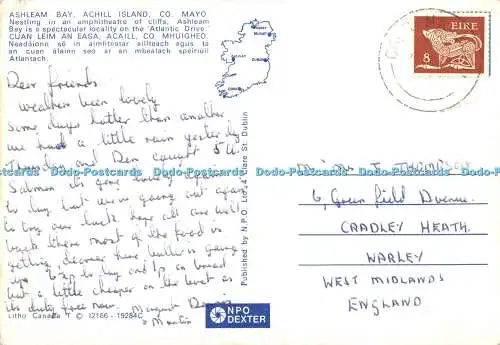 ASHLEAM BAY, ACHILL ISLAND, CO. MAYO
Nestling in an amphitheatre of cliffs, Ashleam
Bay is a spectacular locality on the 'Atlantic Drive.'
CUAN LEIM AN EASA, ACAILL, CO. MHUIGHEO.
Neadaíonn sé in aimfitéatar aillteach agus tá
an cuan álainn seo ar an mbealach speiriúil
Atlantach.
EIRE
8
Dear friends
weather been lovely
some days hotter than another
we had a little rain yesterday
Thursday and Den caught 5lb
Salmon its gone lovely again
to day but were going out again
to try our luck hope all are well
back there most of the food is
getting dearer here butter is going
up to day and 1p on bread
but a little cheaper on the meat as
its duty free now. Margaret Dennis
& Martin
Published by N.P.O. Ltd., 4 Clare St. Dublin
6, Greenfield Avenue.
CRADLEY HEATH.
WARLEY
WEST MIDLANDS
ENGLAND
Litho Canada T © 12166 - 19284C
NPO
DEXTER
Dodo-Postcards Dodo-Postcards Dodo-Postcards Dodo-Postcards Dodo-Postcards